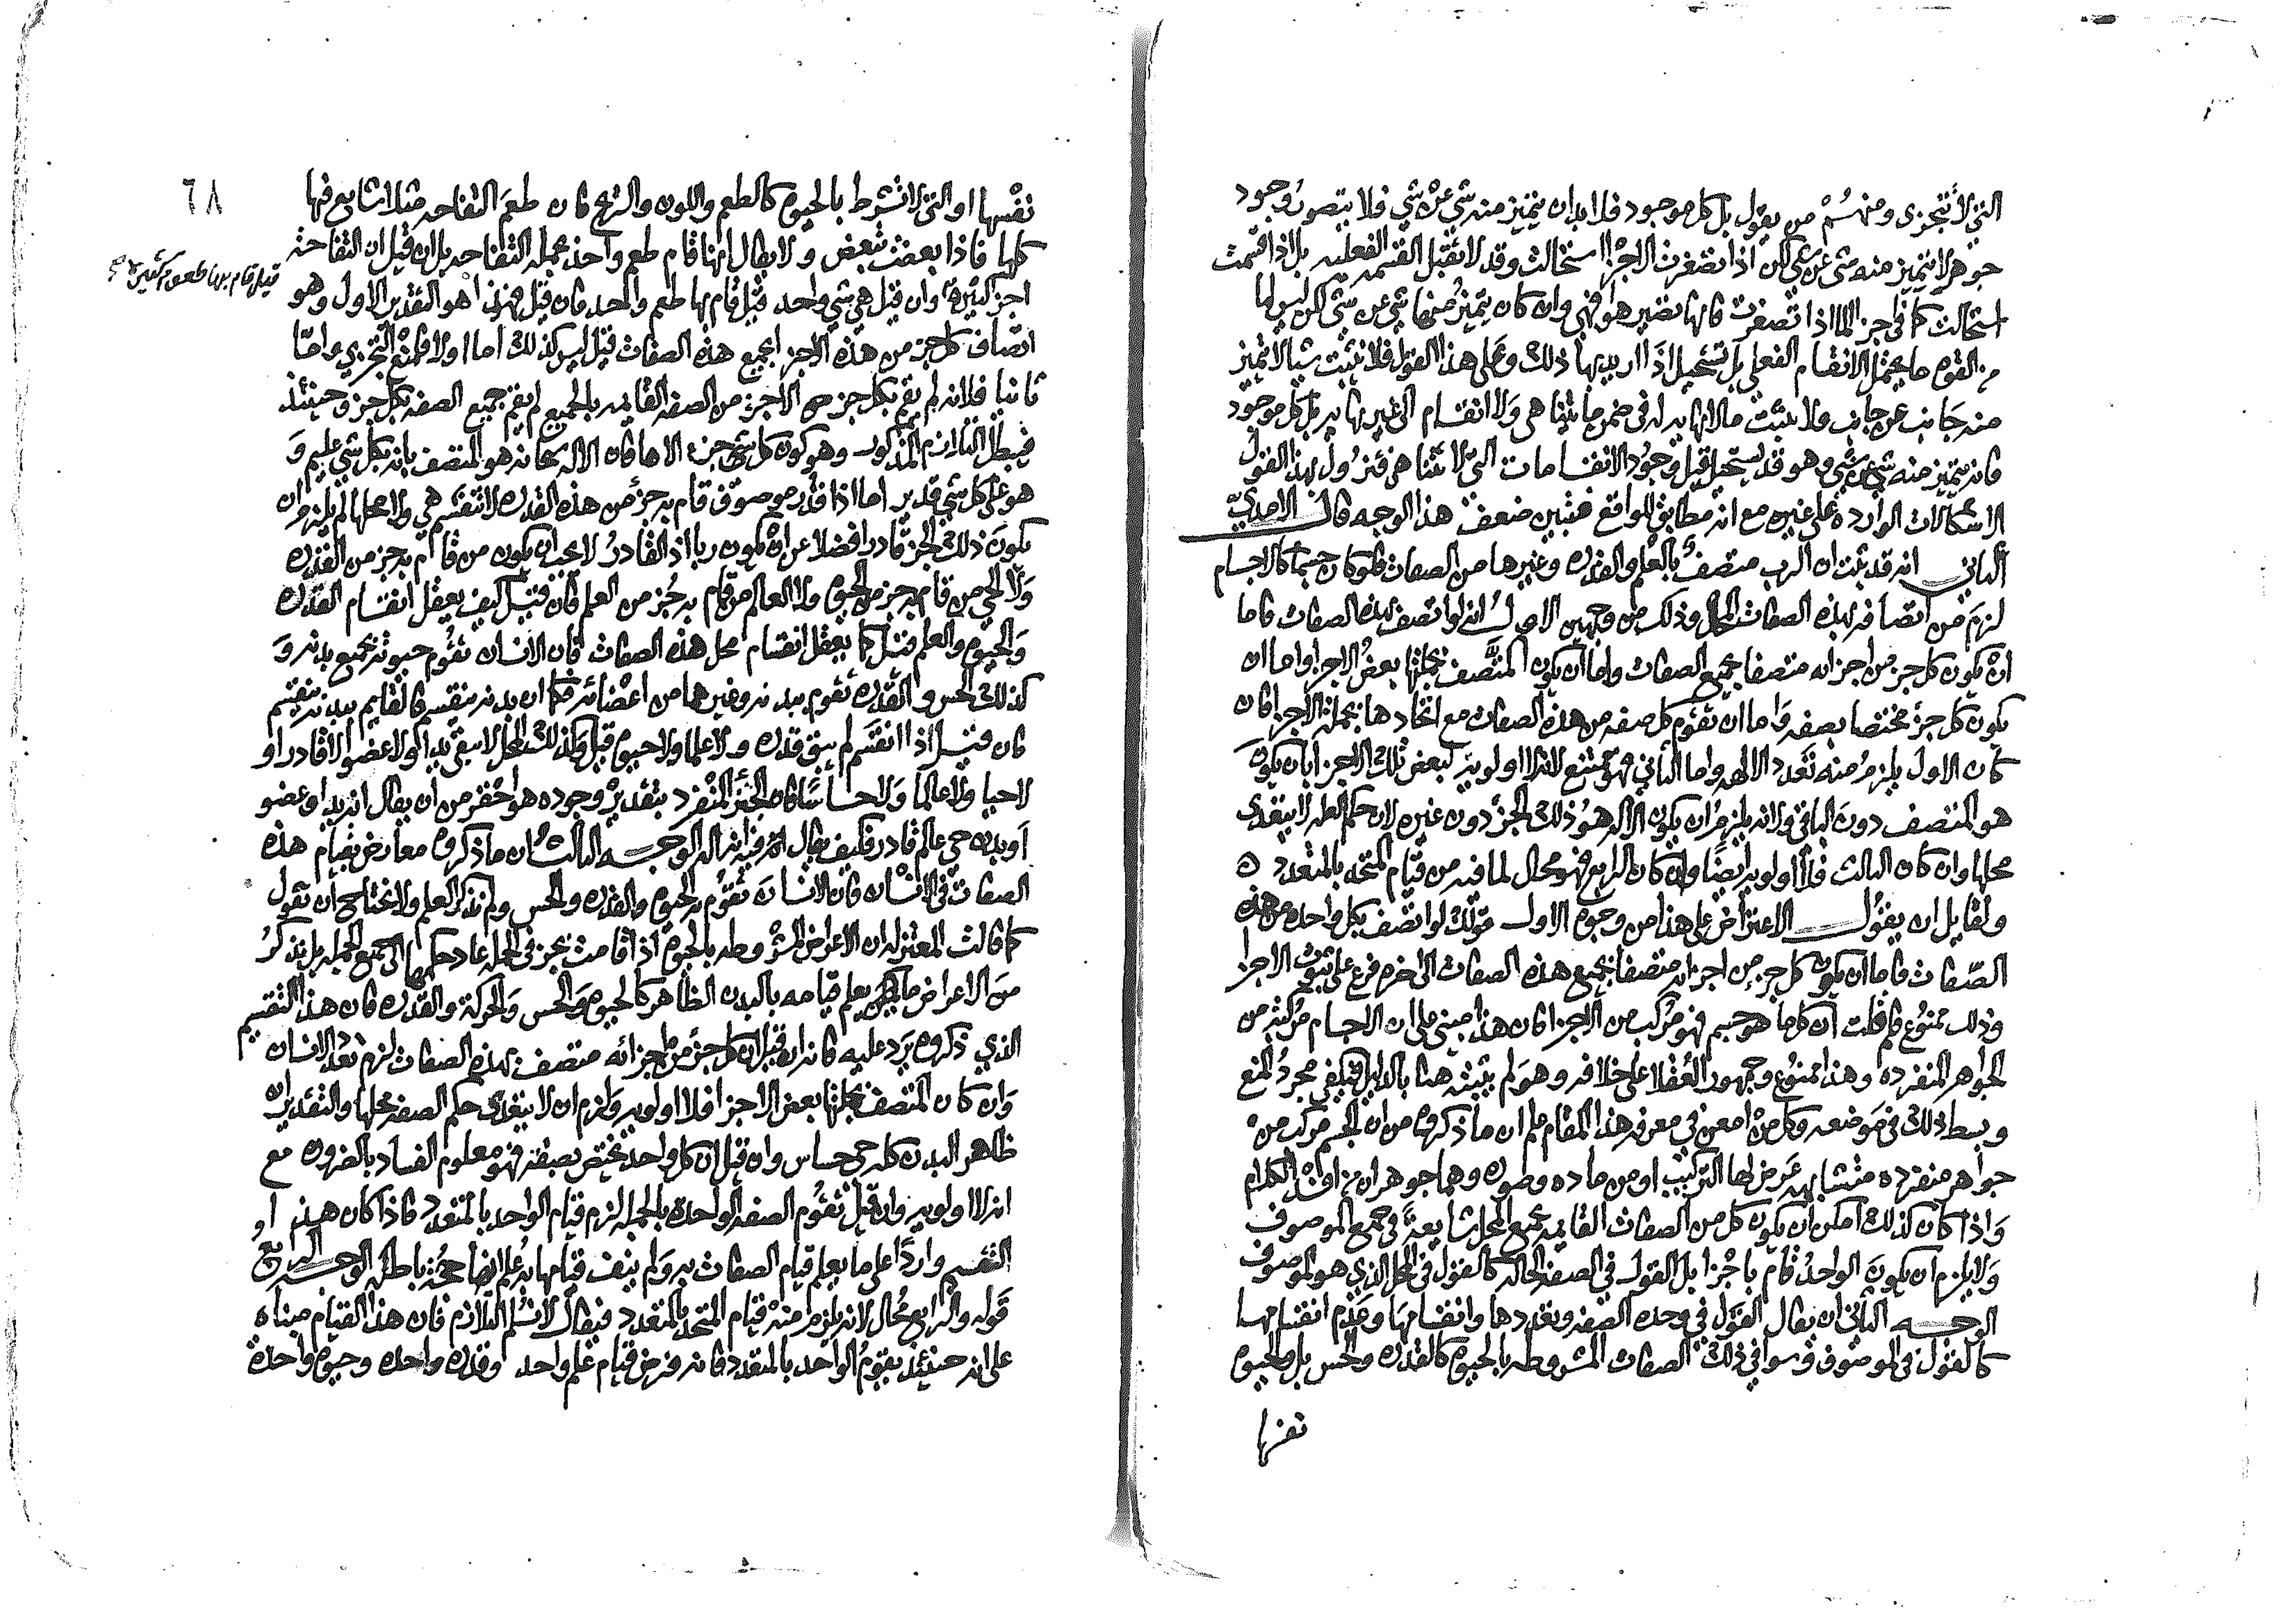 التي لا تتجزى ومنهم من يقول بل كل موجود فلا بد ان يتميز منه شي عن شي فلا يتصور وجود
جوهر لا يتميز منه شي عن شي لكن اذا تصغرت الاجزا استحالت وقد لا تقبل القسمه الفعليه بل اذا قسمت
استحالت كما في جز الما اذا تصغرت فانها تصير هوا فهي وان كان يتميز منها شي عن شي لكن ليس لها
من القوه ما يحتمل الانقسام الفعلي بل تستحيل اذا اريد بها ذلك وعلى هذا القول فلا نثبت شيا لا يتميز
منه جانب عن جانب ولا نثبت مالا نهايه له في ضمن ما يتناهى ولا انقسام الى غير نهايه بل كل موجود
فانه يتميز منه شي عن شي وهو قد يستحيل قبل وجود الانقسامات التي لا تتناهى فتزول بهذا القول
الاشكالات الوارده على غيره مع انه مطابق للواقع فتبين ضعف هذا الوجه قال الامدي
الثاني انه قد ثبت ان الرب متصف بالعلم والقدره وغيرها من الصفات فلو كان جسما كالاجسام
لزم من اتصافه بهذه الصفات المحال وذلك من وجهين الاول انه لو اتصف بهذه الصفات فاما
ان يكون كل جز من اجزائه متصفا بجميع الصفات واما ان يكون المتصف بجملتها بعض الاجزا واما ان
يكون كل جزء مختصا بصفه واما ان تقوم كل صفه من هذه الصفات مع اتحادها بجملة الاجزا فان
كان الاول يلزم منه تعدد الالهه واما الثاني فهو ممتنع لانه لا اولويه لبعض تلك الاجزا بان يكون
هو المتصف دون الباقي ولانه يلزم ان يكون الاله هو ذلك الجزء دون غيره لان حكم العله لا يتعدى
محلها وان كان الثالث فلا اولويه ايضا وان كان الرابع فهو محال لما فيه من قيام المتحد بالمتعدد ه
ولقايل ان يقول الاعتراض على هذا من وجوه الاول قولك لو اتصف بكل واحده من هذه
الصفات فاما ان يكون كل جز من اجزائه متصفا بجميع هذه الصفات الى اخره فرع على ثبوت الاجزا
وذلك ممنوع فلم قلت ان كل ما هو جسم فهو مركب من الاجزا فان هذا مبني على ان الاجسام مركبة من
الجواهر المنفرده وهذا ممنوع وجمهور العقلا على خلافه وهو لم يثبته هنا بالدليل فيكفي مجرد المنع
وبسط ذلك في موضعه وكل من امعن في معرفه هذا المقام علم ان ما ذكروه من ان الجسم مركب من
جواهر منفرده متشابهه عرض لها التركيب او من ماده وصوره وهما جوهران من افسد الكلام
واذا كان كذلك امكن ان يكون كل من الصفات القايمه بجميع المحل شايعة في جميع الموصوف
ولا يلزم ان يكون الواحد قام باجزا بل القول في الصفه الحاله كالقول في المحل الذي هو الموصوف
الوجه الثاني ان يقال القول في وحده الصفه وتعددها وانقسامها وعدم انقسامها
كالقول في الموصوف وسوا في ذلك الصفات المشروطه بالحيوه كالقدره والحس بل والحيوه
نفسها
٦٨
نفسها او التي لا تشترط بالحيوه كالطعم واللون والريح فان طعم التفاحه مثلا شايع فيها
كلها فاذا بعضت تبعض ولا يقال انها قام طعم واحد بجملة التفاحه بل ان قيل ان التفاحة
اجزا كثيرة وان قيل هي شي واحد قيل قام بها طعم واحد فان قيل فهذا هو التقدير الاول وهو
قيل قام بها طعوم كثيره صح
اتصاف كل جز من هذه الاجزا بجميع هذه الصفات قيل ليس كذلك اما اولا فلمنع التجزي واما
ثانيا فلانه لم يقم بكل جز من الاجزا من الصفه القايمه بالجميع لم يقم جميع الصفه بكل جز وحينئذ
فيبطل التلازم المذكور وهو كون كل شي جزء الاها فان الاله سبحانه هو المتصف بانه بكل شي عليم و
هو على كل شي قدير اما اذا قدر موصوف قام به جزء من هذه القدره لا تنقسم هي ولا محلها لم يلزم ان
يكون ذلك الجزء قادرا فضلا عن ان يكون ربا اذ القادر لا يجب ان يكون من قام به جز من القدره
ولا الحي من قام به جز من الحيوه ولا العالم من قام به جز من العلم فان قيل كيف يعقل انقسام القدره
والحيوه والعلم قيل كما يعقل انقسام محل هذه الصفات فان الانسان تقوم حيوته بجميع بدنه و
كذلك الحس والقدره تقوم ببدنه وغيرها من اعضائه فكما ان بدنه ينقسم فالقايم ببدنه ينقسم
فان قيل اذا انقسم لم يبق قدره ولا علما ولا حيوه قيل وكذلك المحل لا يبقى يدا ولا عضوا لا قادرا و
لاحيا ولا عالما ولا حساسا فان الجزء المنفرد بتقدير وجوده هو احقر من ان يقال انه يد او عضو
او بدن حي عالم قادر فكيف يقال فيه انه اله الوجه الثالث ان ما ذكروه معارض بقيام هذه
الصفات في الانسان فان الانسان تقوم به الحيوه والقدره والحس ولم نذكر العلم ولا نحتاج ان نقول
كما قالت المعتزله ان الاعراض المشروطه بالحيوه اذا قامت بجز في الجمله عاد حكمها الى جميع الجمله بل نذكر
من الاعراض ما يعلم قيامه بالبدن الظاهر كالحيوه والحس والحركة والقدره فان هذا التقسيم
الذي ذكروه يرد عليه فانه ان قيل ان كل جزء من اجزائه متصف بهذه الصفات لزم تعدد الانسان
وان كان المتصف بجملتها بعض الاجزا فلا اولويه ولزم ان لا يتعدى حكم الصفه محلها والتقدير ان
ظاهر البدن كله حي حساس وان قيل ان كل واحد يختص بصفة فهو معلوم الفساد بالضروره مع
انه لا اولويه وان قيل تقوم الصفه الواحدة بالجمله لزم قيام الواحد بالمتعدد فاذا كان هذا
التقسيم واردا على ما يعلم قيام الصفات به ولم ينف قيامها به علم انها حجة باطله الوجه الرابع
قوله والرابع محال لانه يلزم منه قيام المتحد بالمتعدد فيقال لا نسلم التلازم فان هذا القيام مبناه
على انه حينئذ يقوم الواحد بالمتعدد فانه فرض قيام علم واحد وقدره واحده وحيوه واحدة